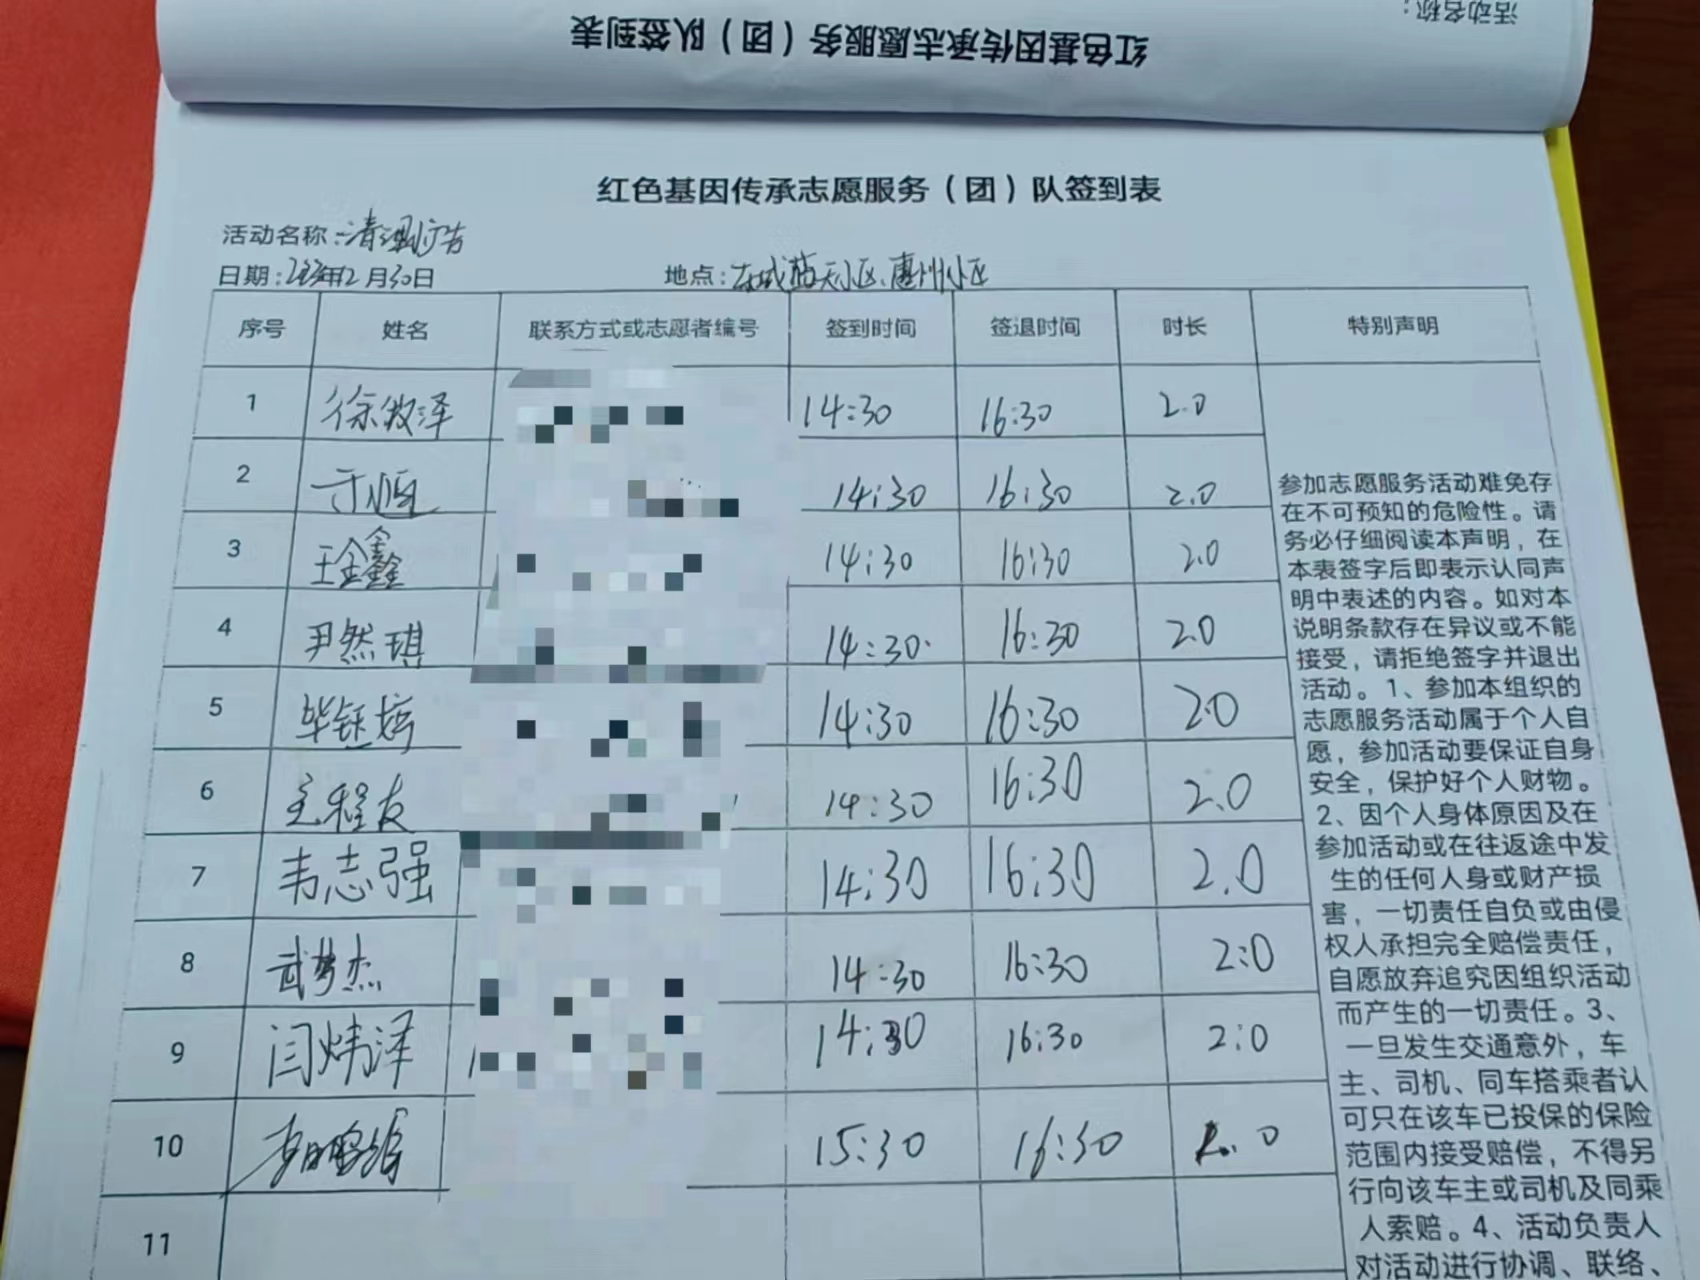 活动名称：
红色基因传承志愿服务（团）队签到表
红色基因传承志愿服务（团）队签到表
活动名称：清理小广告
日期：2023年12月30日 地点：东城蓝天小区、惠州小区
序号 姓名 联系方式或志愿者编号 签到时间 签退时间 时长 特别声明
1 徐微泽 14:30 16:30 2.0
2 于恒 14:30 16:30 2.0
3 王金鑫 14:30 16:30 2.0
4 尹然琪 14:30 16:30 2.0
5 毕钰婷 14:30 16:30 2.0
6 14:30 16:30 2.0
7 韦志强 14:30 16:30 2.0
8 武梦杰 14:30 16:30 2:0
9 闫炜泽 14:30 16:30 2:0
10 15:30 16:30 .0
11
参加志愿服务活动难免存
在不可预知的危险性。请
务必仔细阅读本声明，在
本表签字后即表示认同声
明中表述的内容。如对本
说明条款存在异议或不能
接受，请拒绝签字并退出
活动。1、参加本组织的
志愿服务活动属于个人自
愿，参加活动要保证自身
安全，保护好个人财物。
2、因个人身体原因及在
参加活动或在往返途中发
生的任何人身或财产损
害，一切责任自负或由侵
权人承担完全赔偿责任，
自愿放弃追究因组织活动
而产生的一切责任。3、
一旦发生交通意外，车
主、司机、同车搭乘者认
可只在该车已投保的保险
范围内接受赔偿，不得另
行向该车主或司机及同乘
人索赔。4、活动负责人
对活动进行协调、联络、